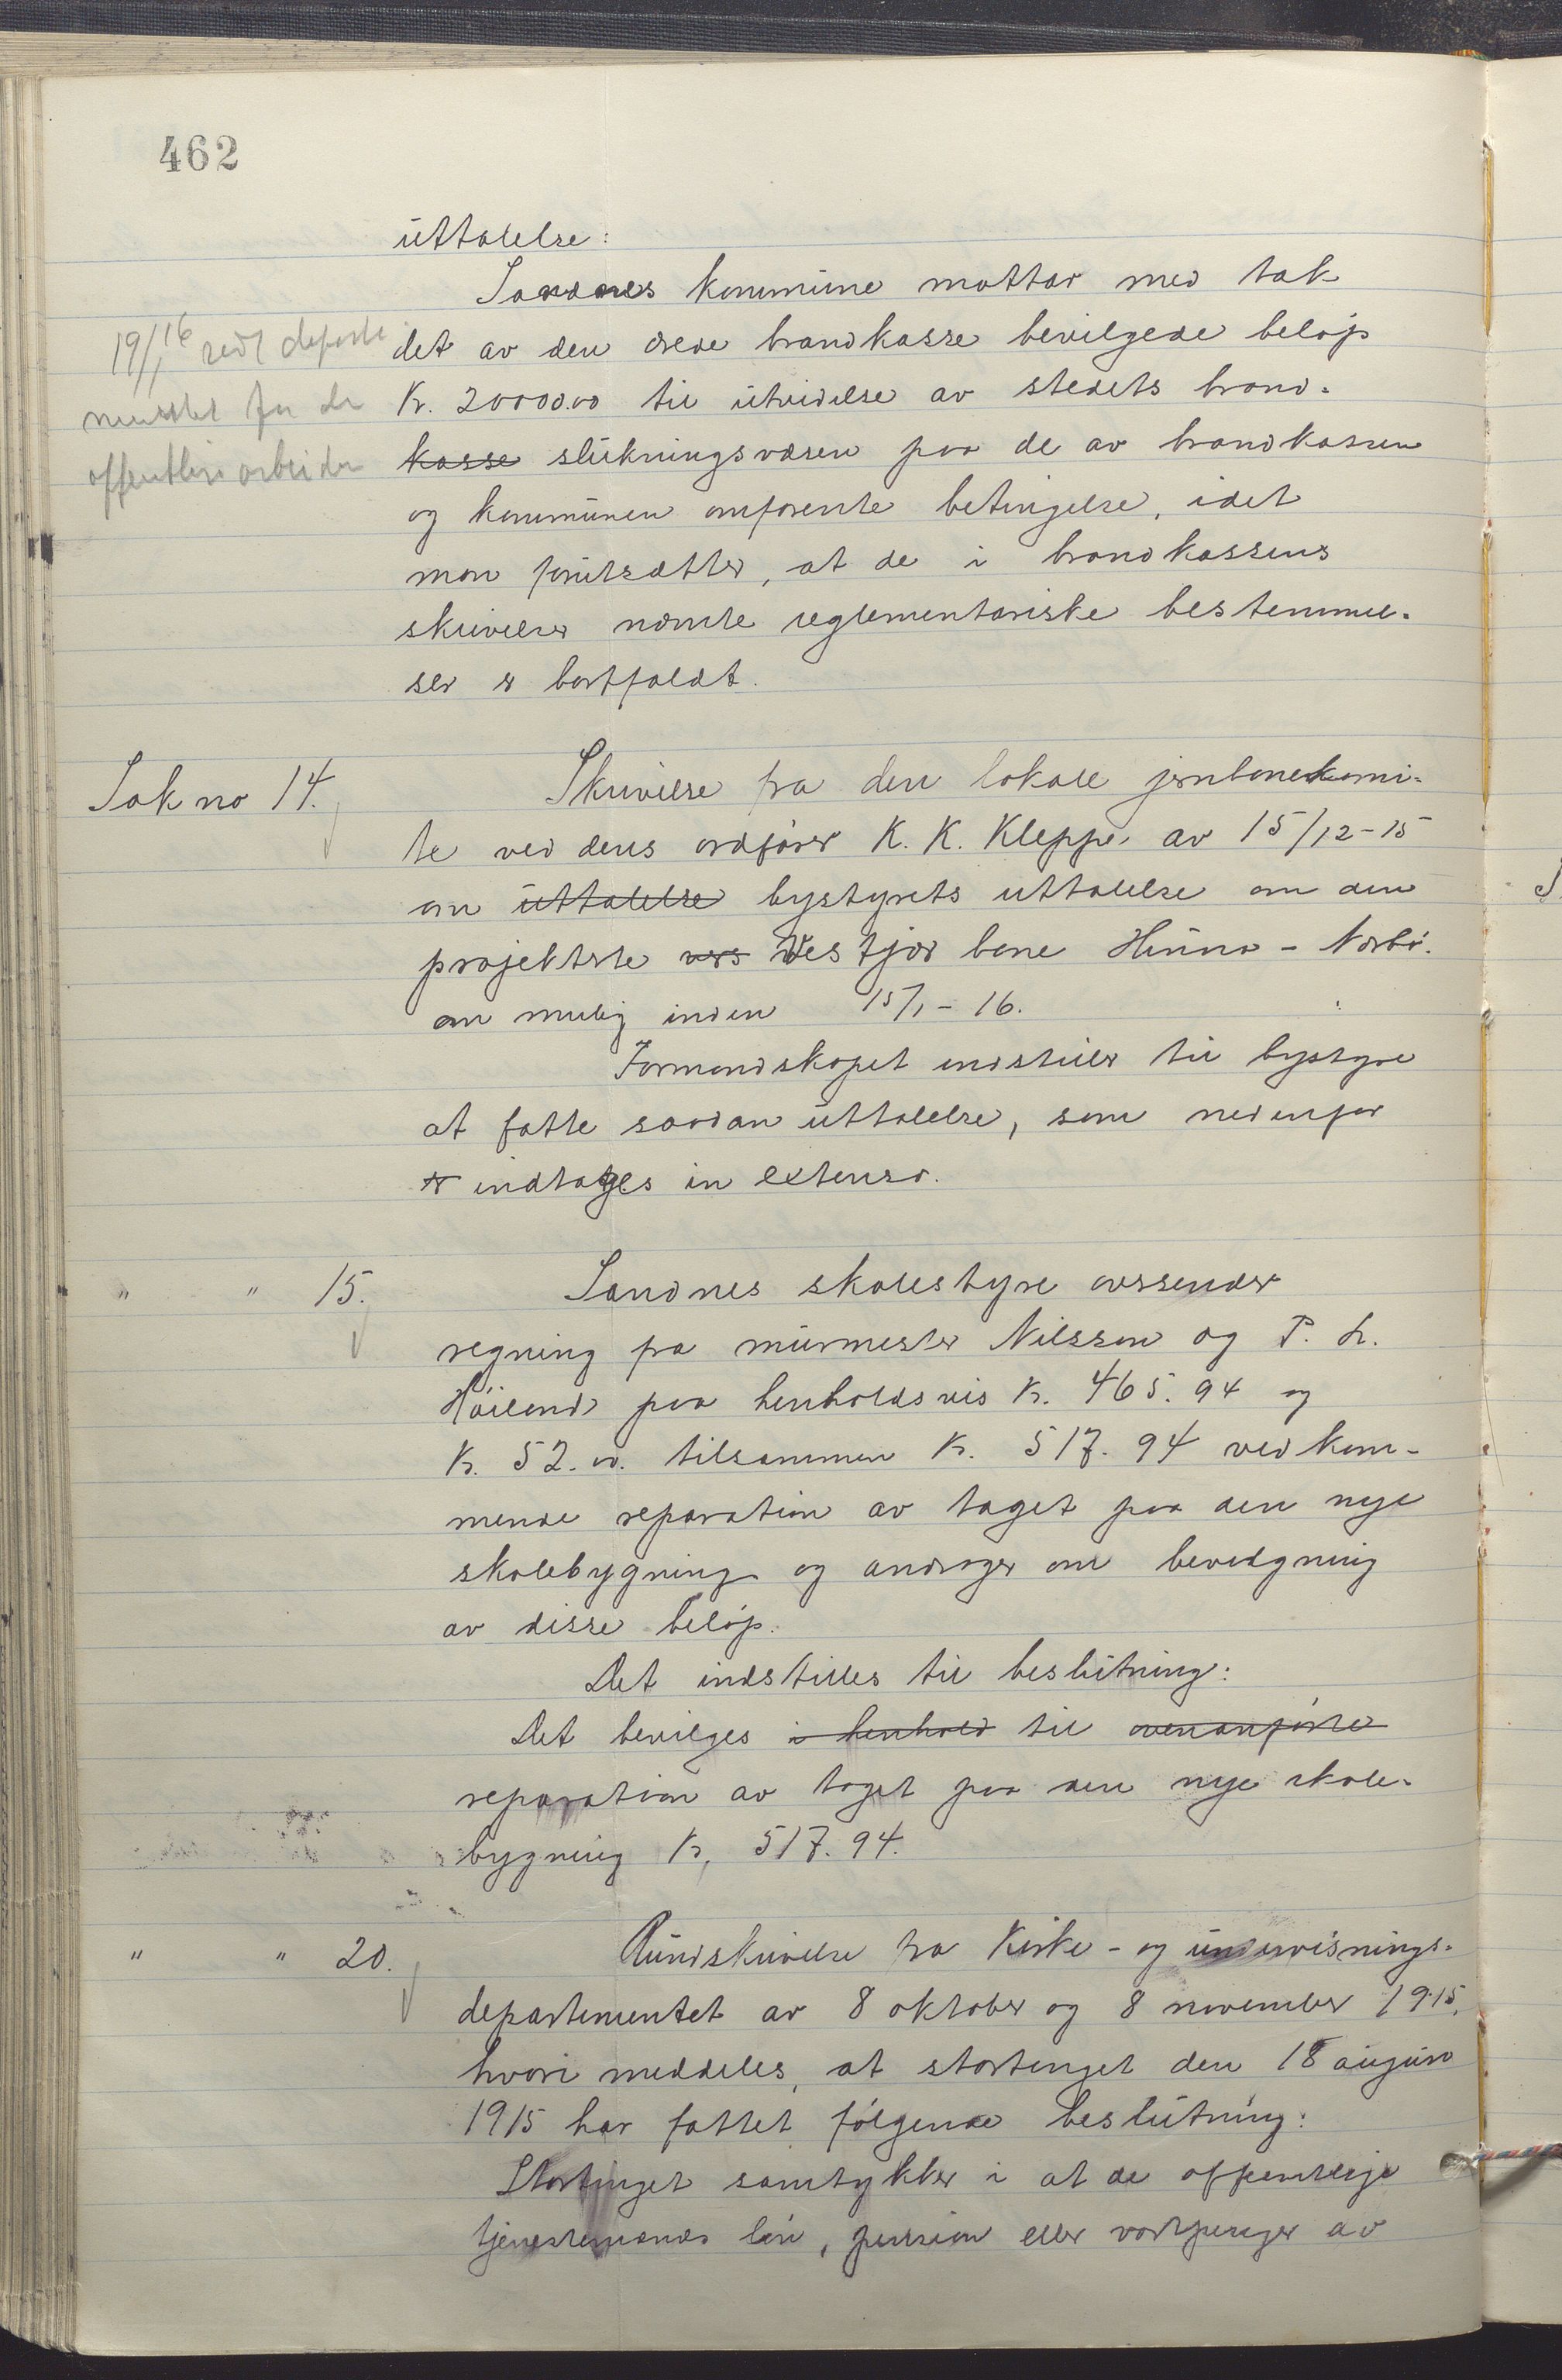 462
uttalelse:
Sandnes kommune mottar med tak
det av den brandkasse bevilgede beløp
Kr. 20000.00 til utvidelse av stedets brand-
kasse slukningsvæsen paa de av brandkassen
og kommunen omforente betingelse, idet
man forutsætter, at de i brandkassens
skrivelser nævnte reglementariske bestemmel-
ser er bortfaldt.
19/1 16 til departe
mentet for de
offentlige arbeider
Sak no 14.
Skrivelse fra den lokale jernbanekomi-
te ved dens ordfører K. K. Kleppe, av 15/12-15
om uttalelse bystyrets uttalelse om den
projekterte vers Vestjær bane Hinna - Nærbø.
om mulig inden 15/1-16.
Formandskapet indstiller til bystyre
at fatte saadan uttalelse, som nedenfor
er indtages in extenso.
" " 15.
Sandnes skolestyre oversender
regning fra murmester Nilssen og P. L.
Høiland paa henholdsvis Kr. 465.94 og
Kr. 52.00. tilsammen Kr. 517.94 vedkom-
mende reparation av taget paa den nye
skolebygning og andrager om bevilgning
av disse beløp.
Det indstilles til beslutning:
Det bevilges i henhold til ovenanførte
reparation av taget paa den nye skole-
bygning Kr. 517.94.
" " 20.
Rundskrivelse fra Kirke- og undervisnings-
departementet av 8 oktober og 8 november 1915,
hvori meddeles, at stortinget den 18 august
1915 har fattet følgende beslutning:
Stortinget samtykker i at de offentlige
tjenestemænds løn, pension eller vartpenger av